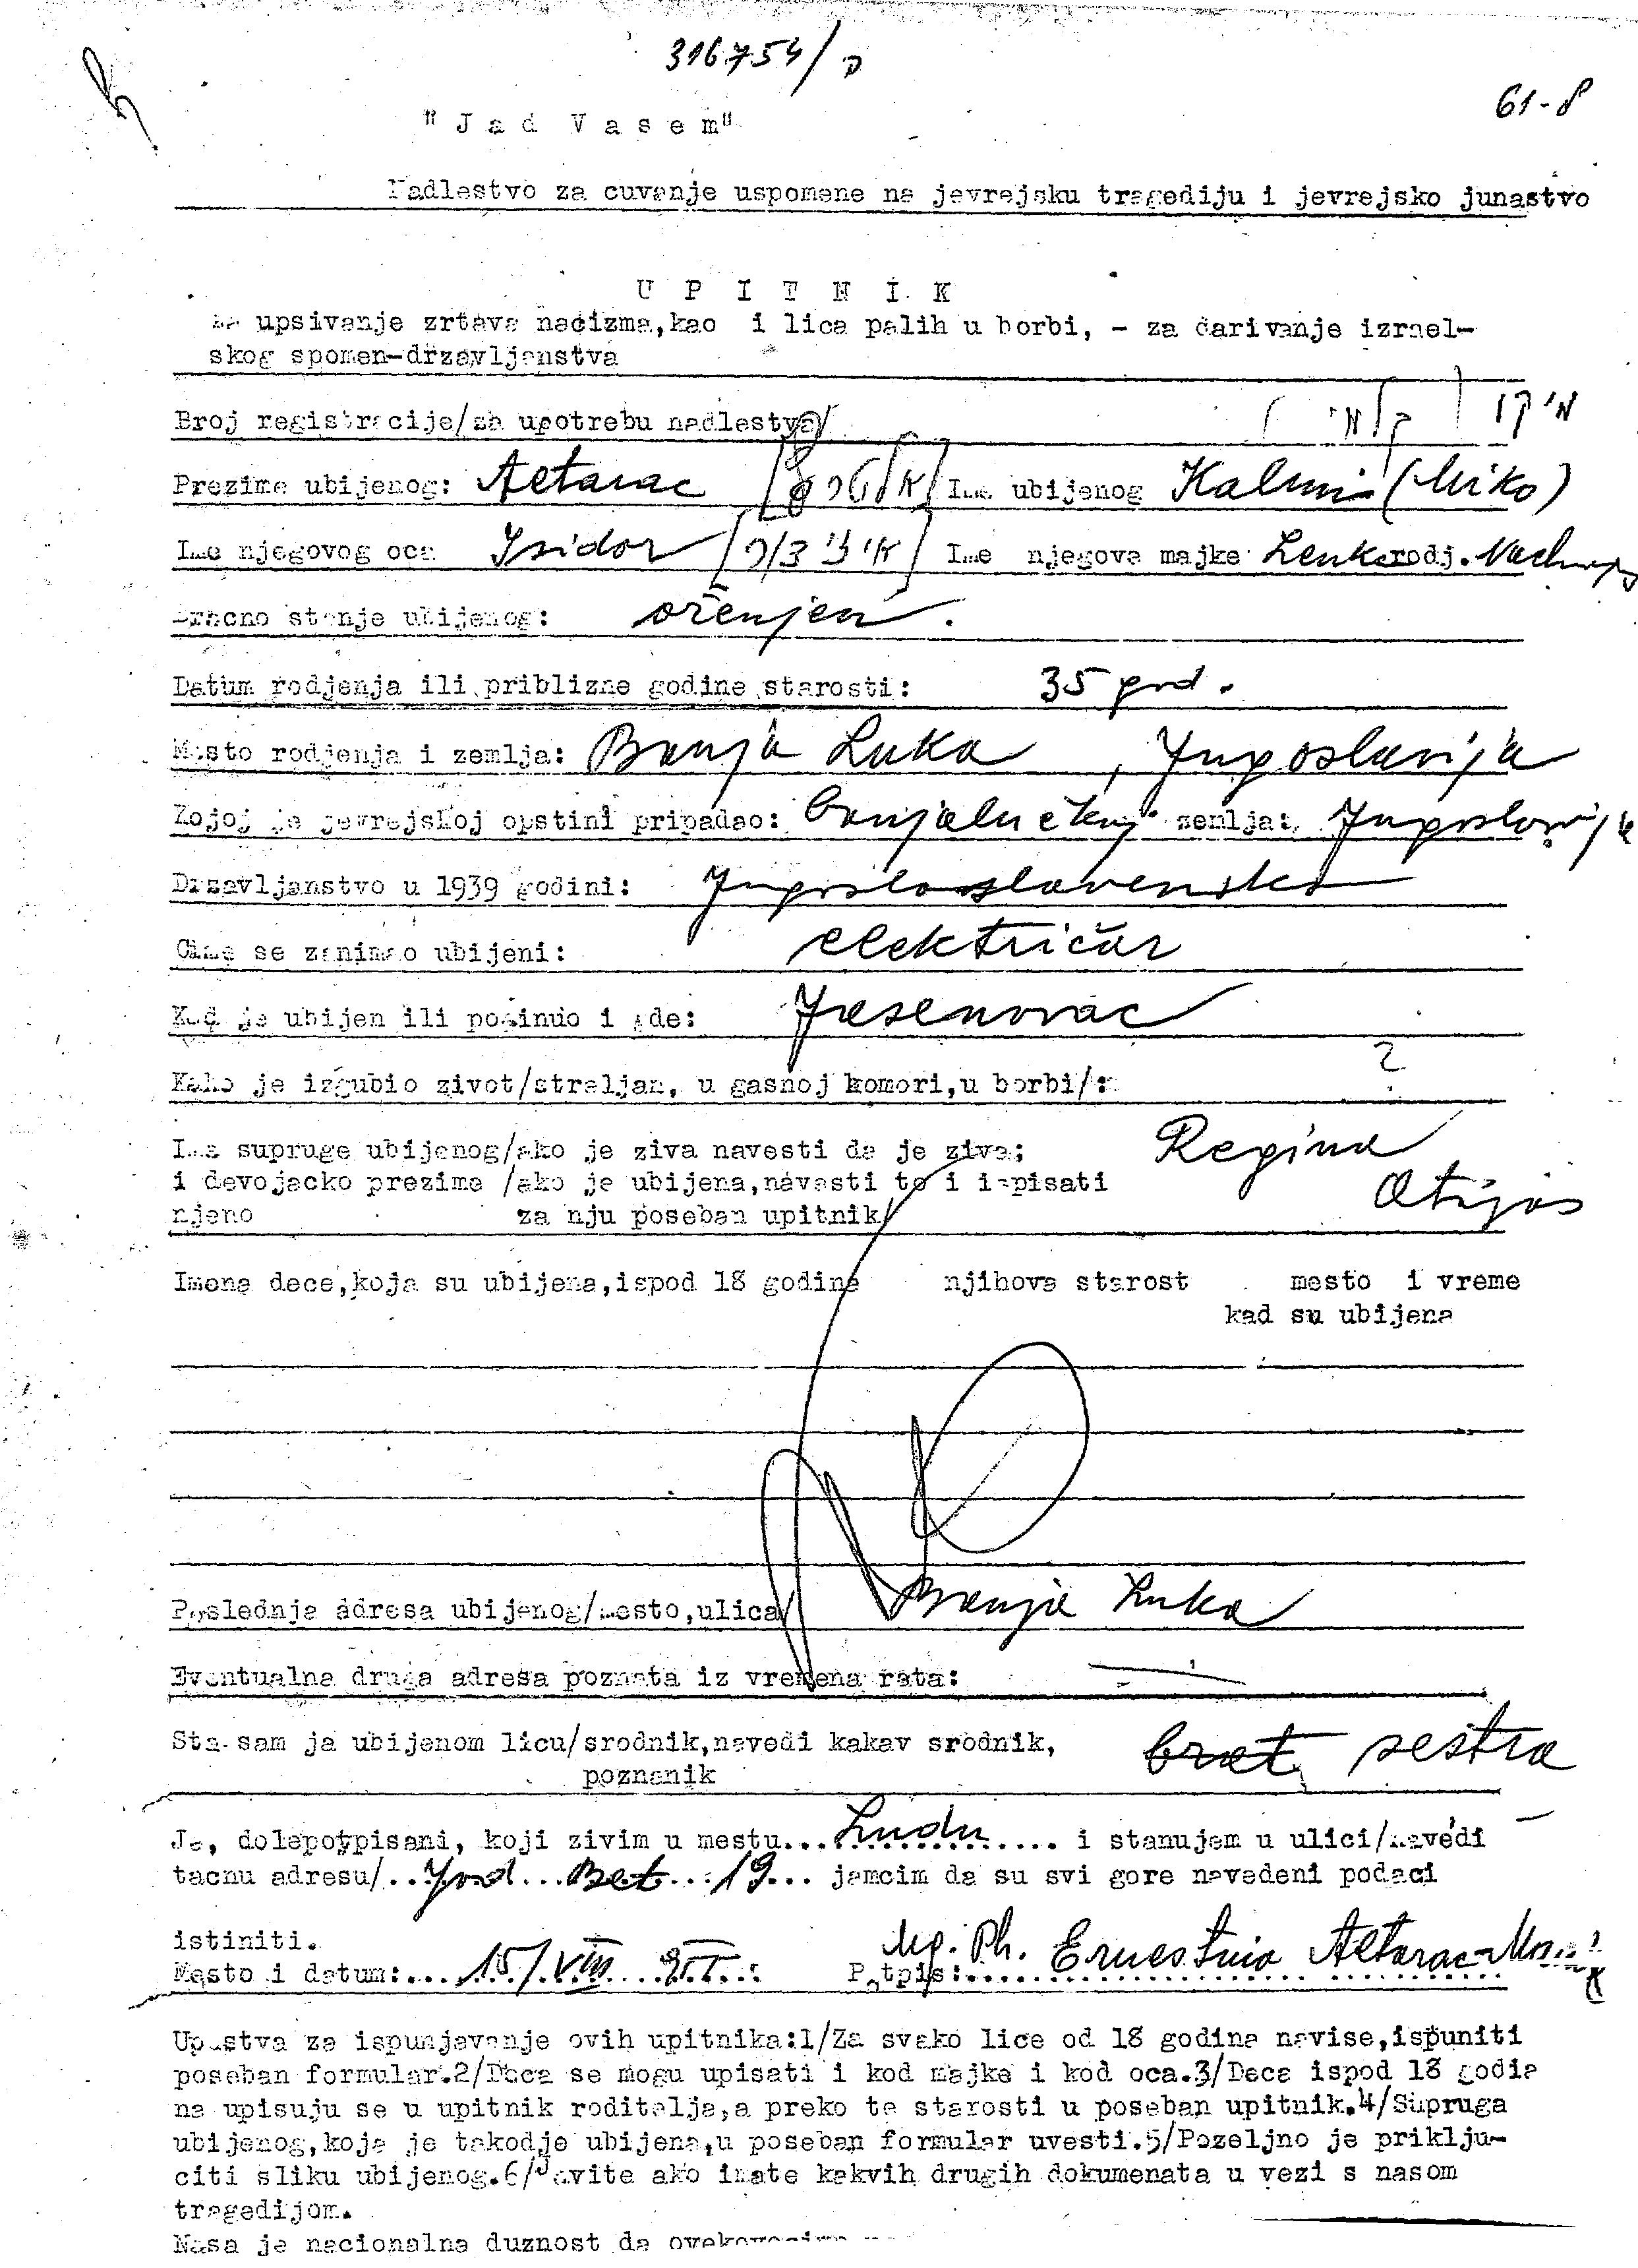 316754/ס
61-8
"Jad Vasem"
Nadlestvo za cuvanje uspomene na jevrejsku tragediju i jevrejsko junastvo
U P I T N I K
za upsivanje zrtava nacizma,kao i lica palih u borbi, - za darivanje izrael-
skog spomen-drzavljanstva
Broj registracije/za upotrebu nadlestva/
Prezime ubijenog: Altarac Ime ubijenog Kalmi (Miko)
Ime njegovog oca Isidor Ime njegove majke Lenka rodj.
Bracno stanje ubijenog: oženjen.
Datum rodjenja ili priblizne godine starosti: 35 god.
Mesto rodjenja i zemlja: Banja Luka, Jugoslavija
Kojoj je jevrejskoj opstini pripadao: banjalučkoj zemlja: Jugoslavija
Drzavljanstvo u 1939 godini:
Cime se zanimao ubijeni: električar
Kad je ubijen ili poginuo i gde: Jasenovac
Kako je izgubio zivot/streljan, u gasnoj komori,u borbi/: ?
Ime supruge ubijenog/ako je ziva navesti da je ziva; Regina
i devojacko prezime /ako je ubijena,navesti to i ispisati Atijas
njeno za nju poseban upitnik/
Imena dece,koja su ubijena,ispod 18 godina njihova starost mesto i vreme
kad su ubijena
Poslednja adresa ubijenog/mesto,ulica/ Banja Luka
Eventualna druga adresa poznata iz vremena rata: —
Sta sam ja ubijenom licu/srodnik,navedi kakav srodnik, brat sestra
poznanik
Ja, dolepotpisani, koji zivim u mestu... Ludu .... i stanujem u ulici/navedi
tacnu adresu/..Jod...Bet...19... jamcim da su svi gore navedeni podaci
istiniti.
Mesto i datum:.... 15/VIII Potpis:.... Mg. Ph. Ernestina Altarac-
Upustva za ispunjavanje ovih upitnika:1/Za svako lice od 18 godina navise,ispuniti
poseban formular.2/Deca se mogu upisati i kod majke i kod oca.3/Deca ispod 18 godia
na upisuju se u upitnik roditelja,a preko te starosti u poseban upitnik.4/Supruga
ubijenog,koja je takodje ubijena,u poseban formular uvesti.5/Pozeljno je priklju-
citi sliku ubijenog.6/Javite ako imate kakvih drugih dokumenata u vezi s nasom
tragedijom.
Nasa je nacionalna duznost da